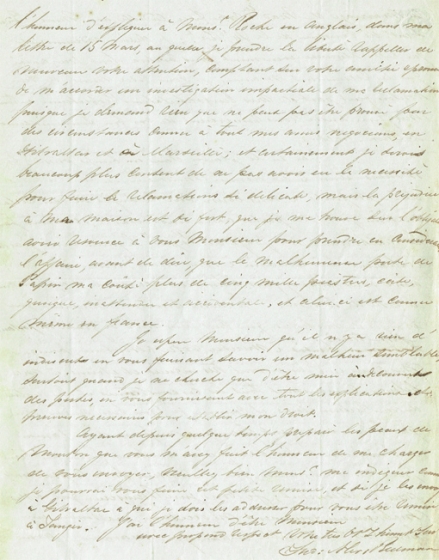 l'honneur d'expliquer à Mons.r Roche en Anglais, dans ma
lettre de 15 Mars, au quelle je prendre la liberté d'appeller de
nouveau votre attention, comptant sur votre
de m'accorder un investigation impartiale de ma reclamation
puisque je demand rien que ne peut pas être prouvé par
des circonstances connues à tout mes amis negocians, en
Gibraltar et à Marseille; et certainement je devrai
beaucoup plus content de ne pas avoir eu la necessité
pour faire le reclamations si delicate, mais la prejudice
à ma maison est si fort, que je me trouve sur l'obligation
avoir recours à vous Monsieur pour prendre en
l'affaire, avant de dire, que le malheureuse perte de
ma couté plus de cinq mille piastres, cette,
quoique, inattendue et accidentale, et celui ci est connue
même en france.
Je espere Monsieur qu'il n'y a rien d'
indiscret en vous faisant savoir un malheur semblable,
surtout quand je ne cherche que d'être
des pertes, en vous fournissant avec tout les explications et
preuves necessaires pour mon droit.
Ayant depuis quelque temps les peaux de
Mouton que vous m'avez fait l'honneur de me charger
de vous envoyer, veuillez bien Mons.r me indiquer comme
je pourrai vous faire et petit remise, et si je les envoye
à Gibraltar à qui je dois les adresser pour vous être remis
à Tanger. J'ai l'honneur d'être Monsieur
avec profond respect Votre